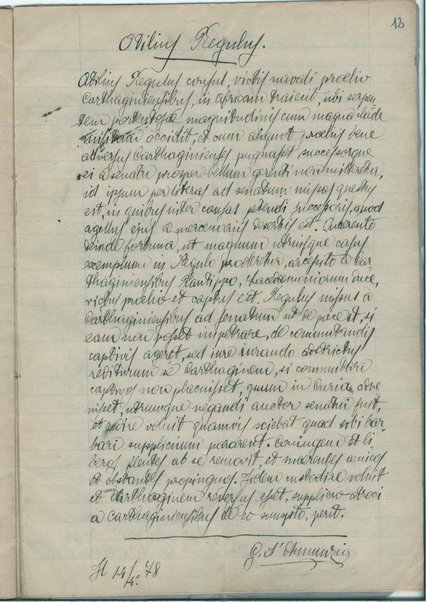 12
Atilius Regulus.
Atilius Regulus consul, victis navali proelio
Carthaginiensibus, in Africam traiecit, ubi serpen
tem portentosae magnitudinis cum magna clade
militum occidit, et cum aliquot proeliis bene
adversus Carthaginienses pugnasset successorque
ei a senatu prospere bellum gerenti non mitteretur,
id ipsum per literas ad senatum missas questus
est, in quibus inter causas petendi successoris, quod
agellus ejus a mercenariis desertus est.
deinde fortuna, ut magnum utriusque casus
exemplum in Regulo proderetur, arcessito a Car
thaginiensibus Xantippo, Lacedaemoniorum duce,
victus proelio et captus est. Regulus missus a
Carthaginiensibus ad senatum ut de pace et, si
eam non posset impetrare, de commutandis
captivis ageret, sed iure iurando adstrictus
rediturum se Carthaginem, si commutari
captivos non placuisset, quum in Curiam
nisset, utrumque negandi auctor senatui fuit,
et redire voluit quamvis sciebat quod sibi bar
bari supplicium pararent. Coniugem et li
beros flentes ab se removit, et maerentes amicos
et obstantes propinquos. Fidem custodire voluit
et Carthaginem reversus esset, supplicio atroci
a Carthaginiensibus de eo sumpto, perit.
G. d'Annunzio
78